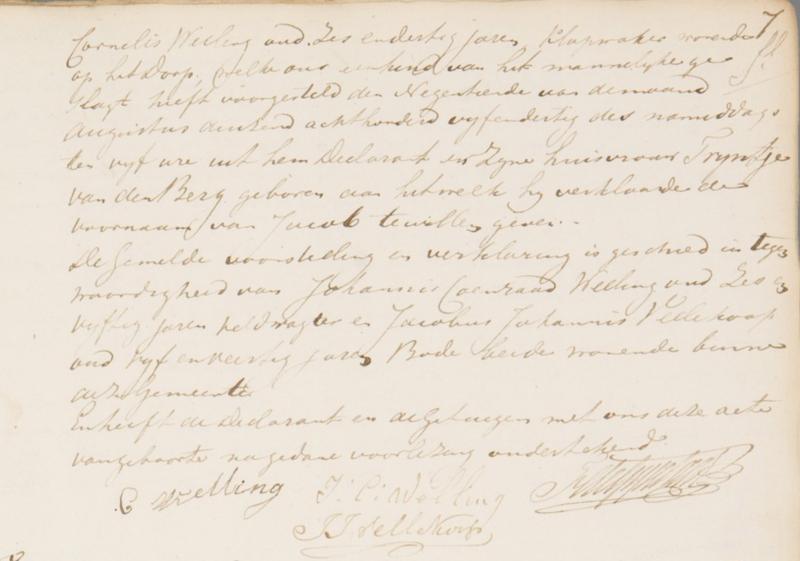 Cornelis Welling oud Zes en dertig jaren Klapwaker wonende
op het Dorp, welke ons een kind van het mannelijke ge
slagt heeft voorgesteld den Negentiende van de maand
Augustus duizend achthonderd vyf en dertig des namiddags
ten vyf ure uit hem Declarant en Zyne huisvrouw Tryntje
van den Berg geboren aan hetwelk hy verklaarde de
voornaam van Jacob te willen geven.
De Gemelde voorstelling en verklaring is geschied in tegen
woordigheid van Johannis Coenraad Welling oud Zes en
vyftig jaren veldwagter en Jacobus Johannis Vellekoop
oud vyf en veertig jaren Bode beide wonende binne
deze Gemeente
En heeft de Declarant en de Getuigen met ons deze acte
van geboorte na gedane voorlezing onderteekend
C Welling J: C: Welling
J J Vellekoop